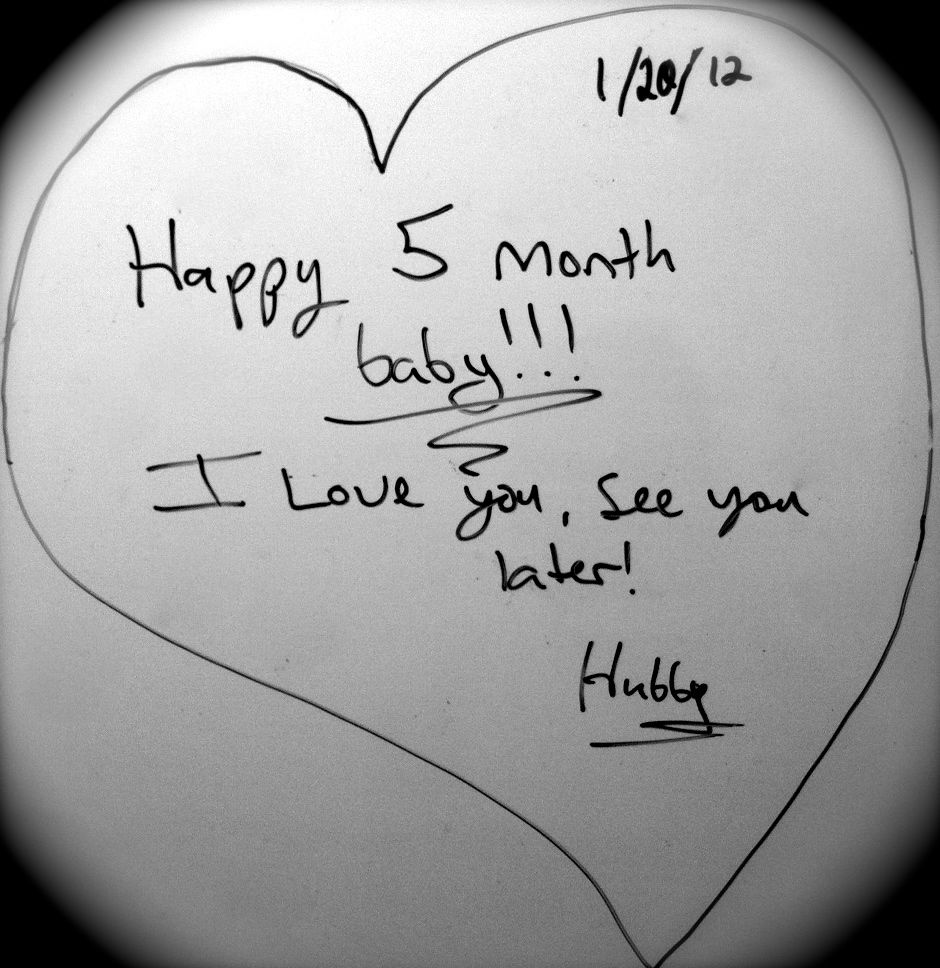 1/20/12
Happy 5 Month
baby!!!
I Love you, See you
later!
Hubby